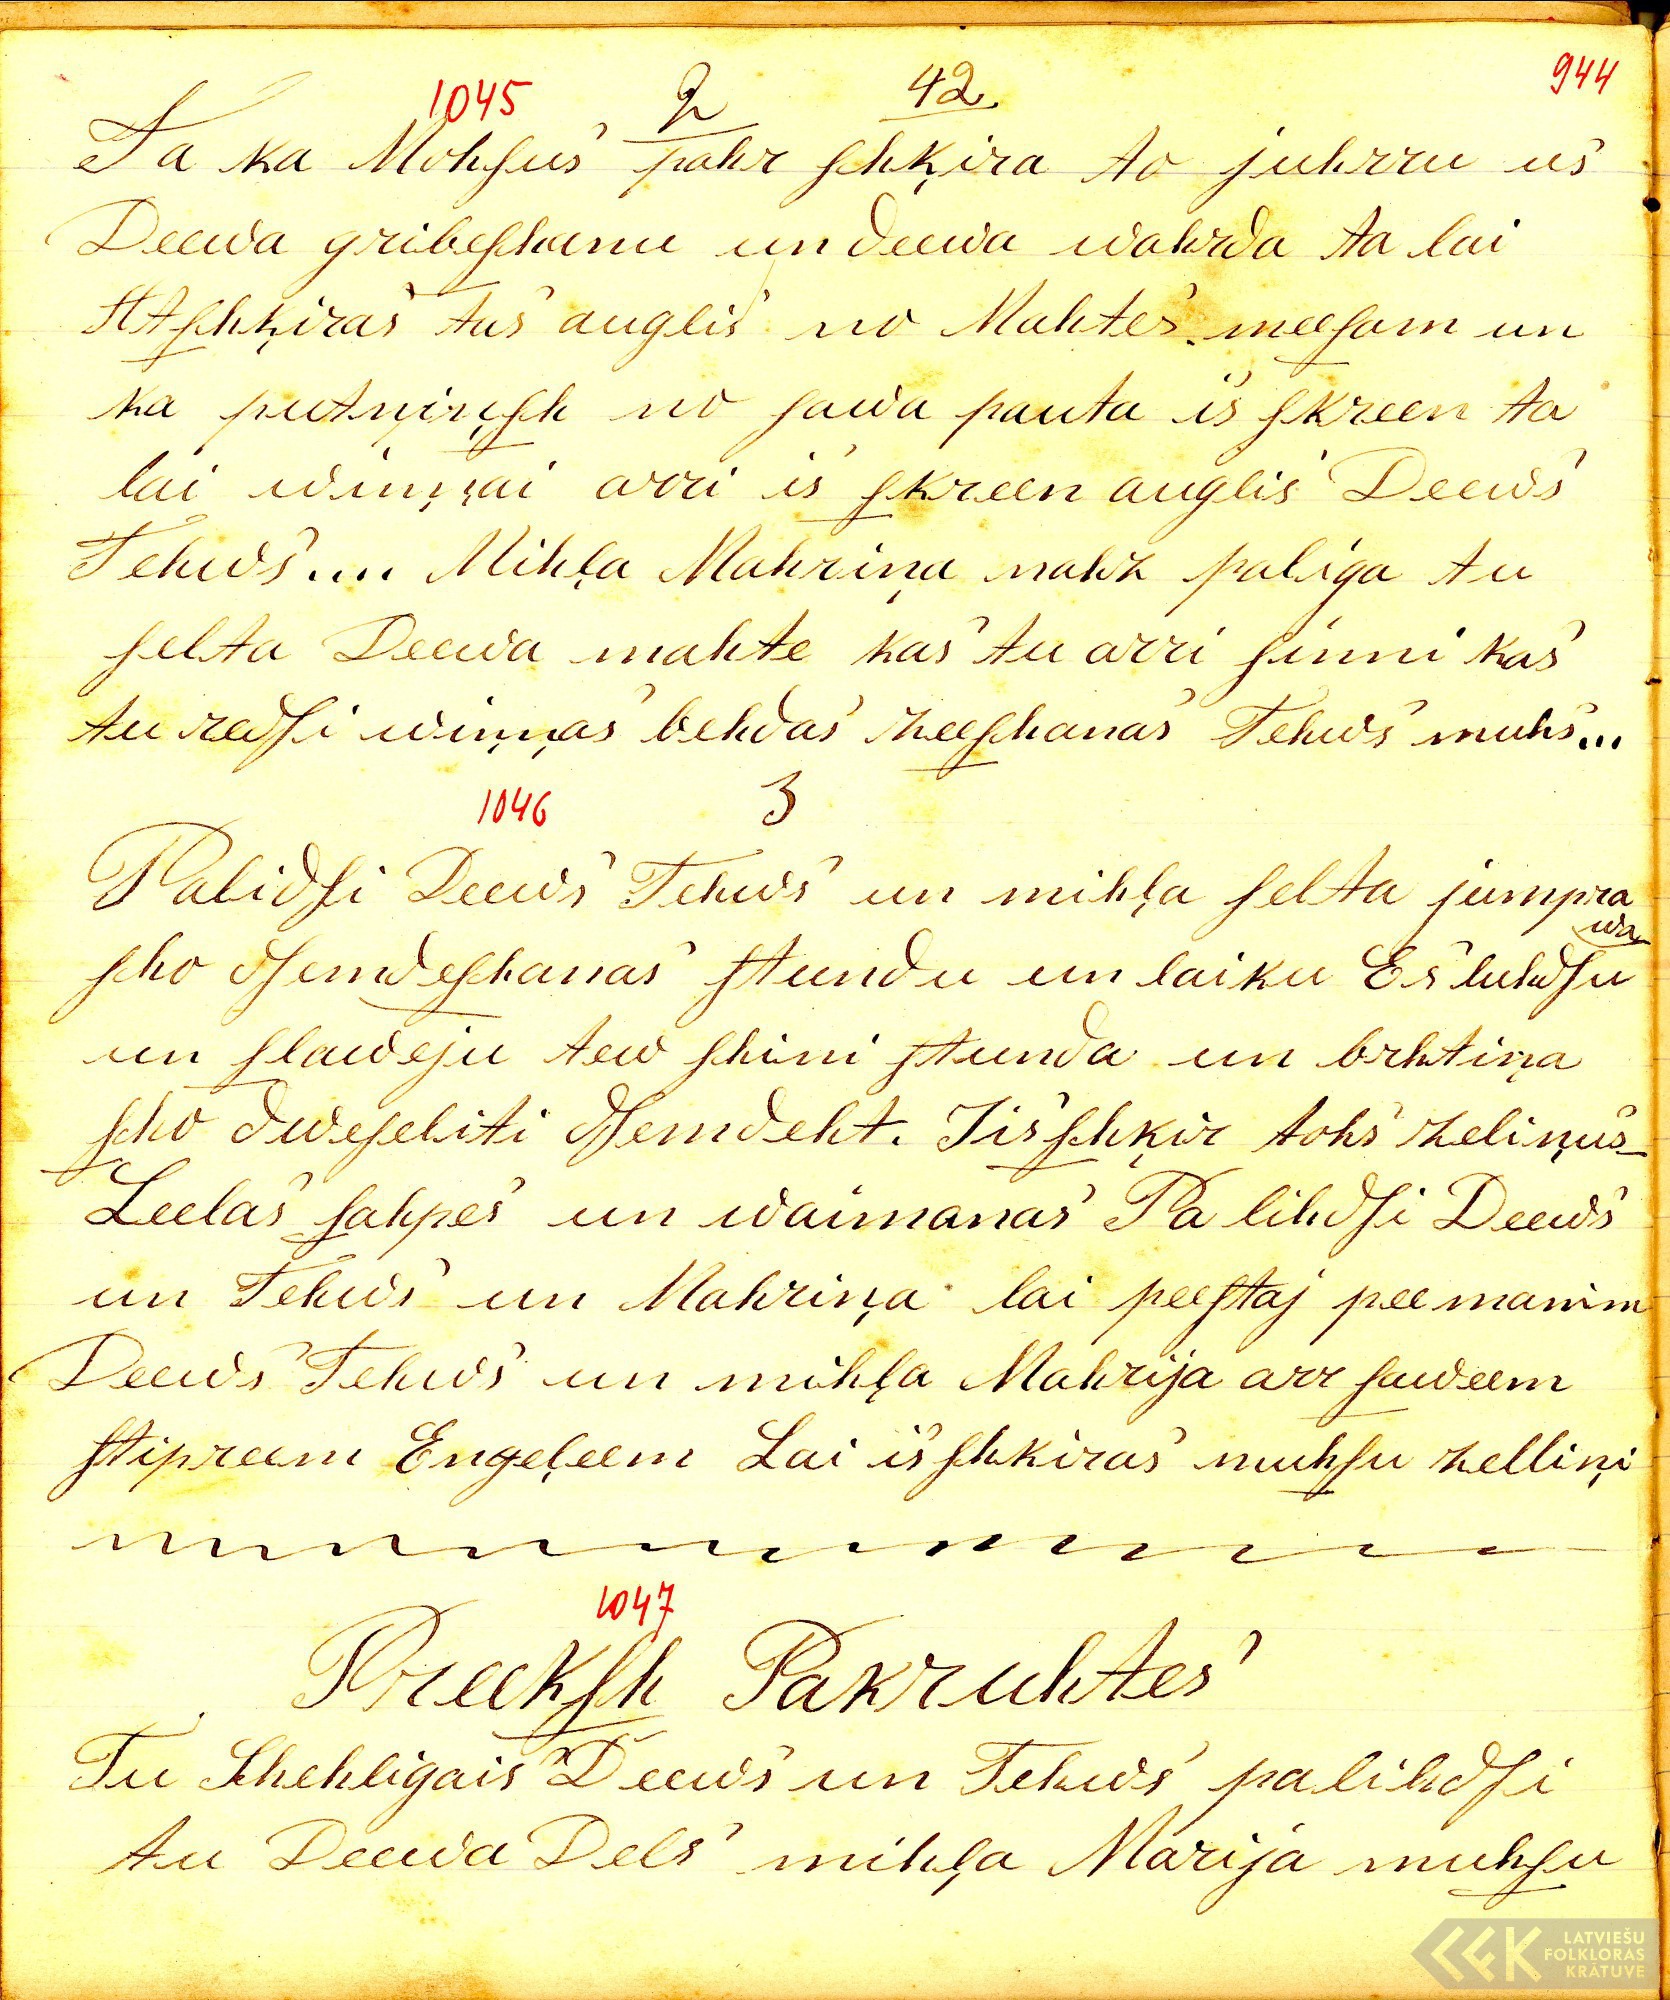 944
1045 2 42.
Ta ka Mohſus pahr ſchķira to juhrru us
Deewa gribeſchanu un deewa wahrda ta lai
Atſchķiras tas auglis no Mahtes meeſam un
ka putniņſch no ſawa pauta is ſkreen ta
lai wiņņai arri is ſkreen auglis Deews
Tehws.... Mihļa Mahriņa nahz paliga tu
ſelta Deewa mahte kas tu arri ſinni kas
tu redſi wiņņas behdas zeeſchanas Tehws muhs...
1046 3
Palidſi Deews Tehws un mihļa ſelta jumpra
wa
ſcho dſemdeſchanas ſtundu un laiku Es luhdſu
un ſlaweju tew ſchini ſtunda un brhtiņa
ſcho dweſeliti dſemdeht. Jisſchķir tohs zeliņus
Leelas ſahpes un waimanas Pa lihdſi Deews
un Tehws un Mahriņa lai peeſtaj pee manim
Deews Tehws un mihļa Mahrija arr ſaweem
ſtipreem Engeļeem Lai is ſchkiras muhſu zelliņi
1047
Preekſch Pakruhtes
Tu Schehligais Deews un Tehws palihdſi
tu Deewa Dels mihļa Marija muhſu
LATVIEŠU
FOLKLORAS
KRĀTUVE